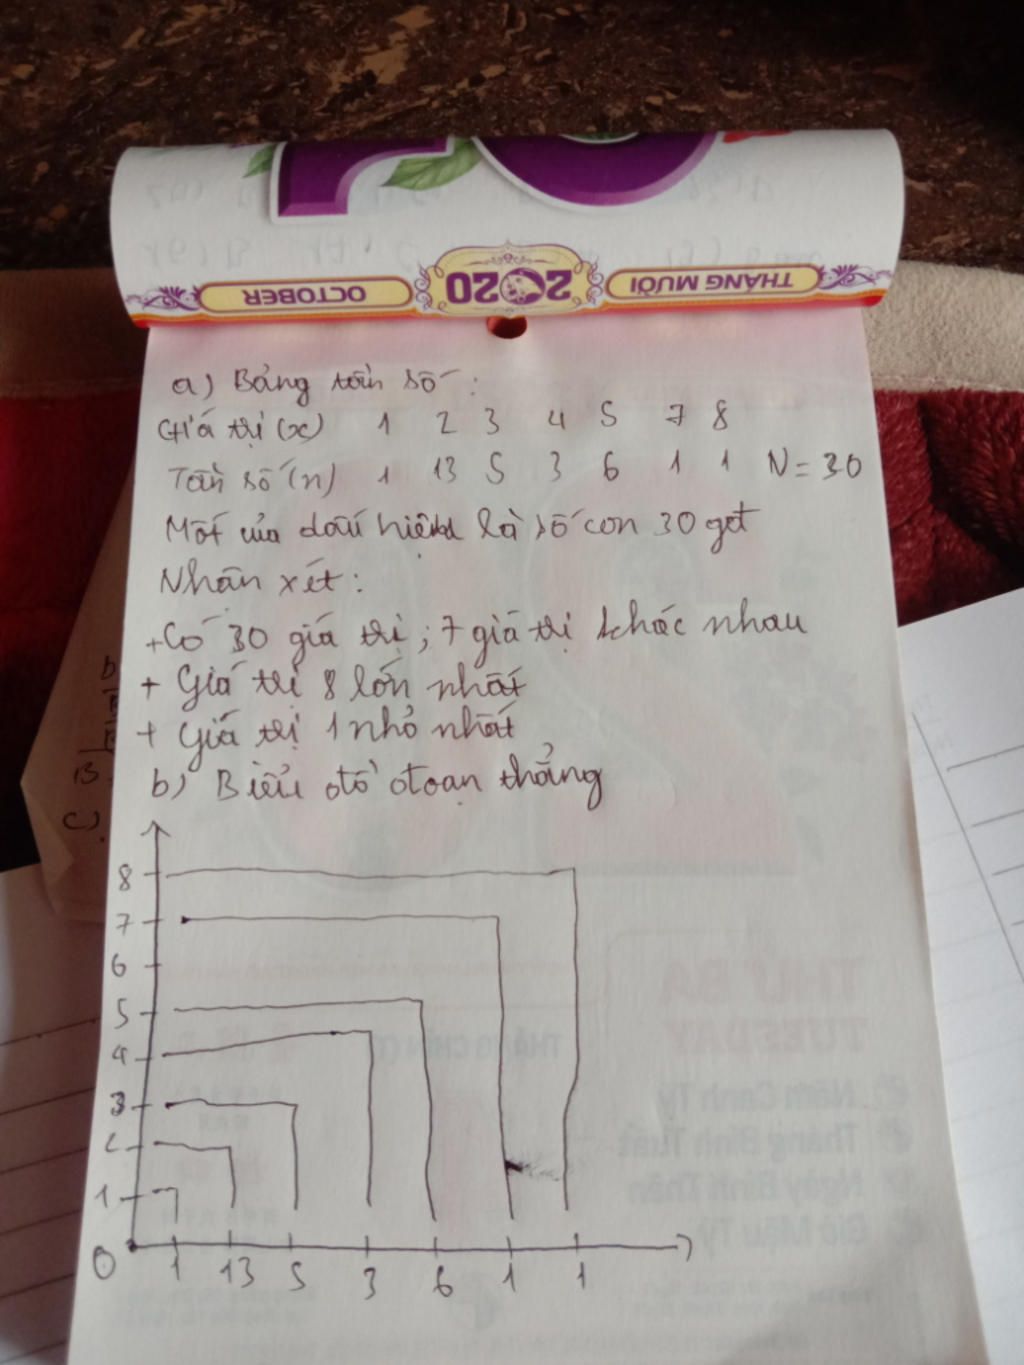 THÁNG MƯỜI
2020
OCTOBER
a) Bảng tần số:
Giá trị (x) 1 2 3 4 5 7 8
Tần số (n) 1 13 5 3 6 1 1 N = 30
Mốt của dấu hiệu là số con 30 gđ
Nhận xét:
+ Có 30 giá trị; 7 giá trị khác nhau
+ Giá trị 8 lớn nhất
+ Giá trị 1 nhỏ nhất
b) Biểu đồ đoạn thẳng
8
7
6
5
4
3
2
1
0 1 13 5 3 6 1 1
THỨ BA
TUESDAY
THÁNG CHÍN (T)
Năm Canh Tý
Tháng Bính Tuất
Ngày Bính Thân
Giờ Mậu Tý